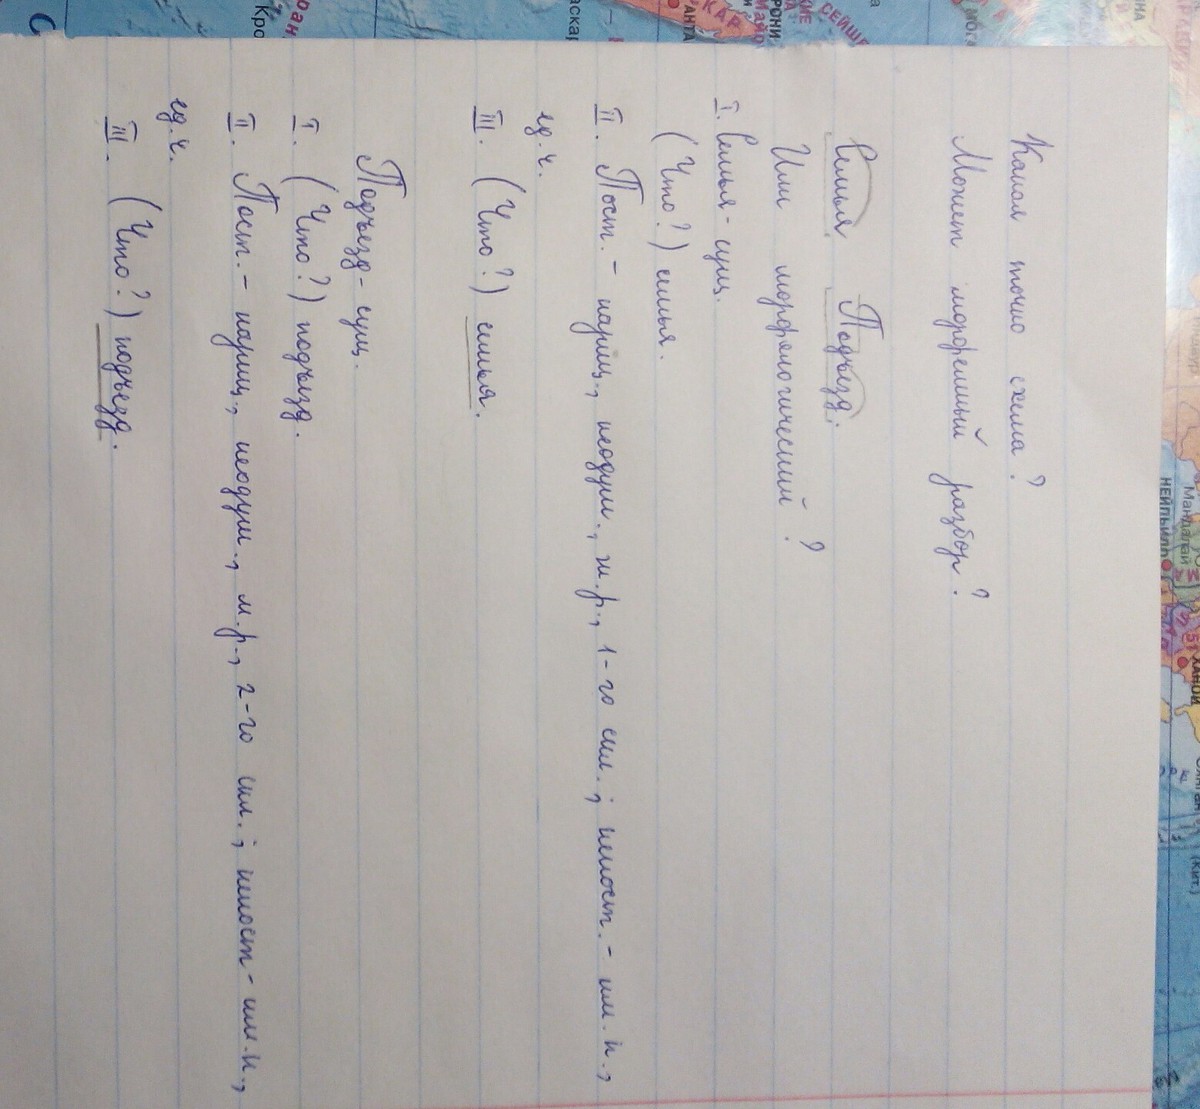 Какая точно схема?
Может морфемный разбор?
Семья. Подъезд.
Или морфологический?
I. Семья - сущ.
(Что?) семья.
II. Пост. - нариц., неодуш., ж.р., 1-го скл.; непост. - им.п.,
ед.ч.
III. (Что?) семья.
Подъезд - сущ.
I. (Что?) подъезд.
II. Пост. - нариц., неодуш., м.р., 2-го скл.; непост - им.п.,
ед.ч.
III. (Что?) подъезд.
НЕЙПЬИДО
Мандалай
ХАНОЙ
СЕЙШЕ
КАР
Кро